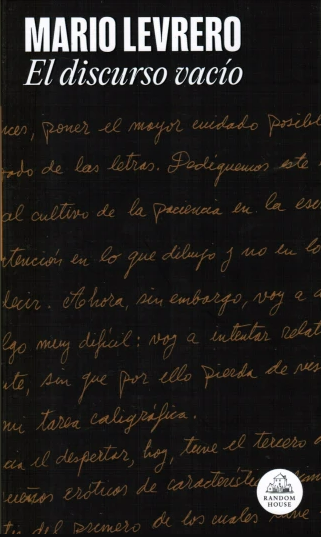 MARIO LEVRERO
El discurso vacío
nces, poner el mayor cuidado posibl
zado de las letras. Dediquemos este
al cultivo de la paciencia en la esc
atención en lo que dibujo y no en lo
decir. Ahora, sin embargo, voy a a
lgo muy difícil: voy a intentar relat
te, sin que por ello pierda de vis
mi tarea caligráfica.
cia el despertar, hoy, tuve el tercero d
sueños eróticos de características
tir del primero de los cuales tuve
RANDOM
HOUSE